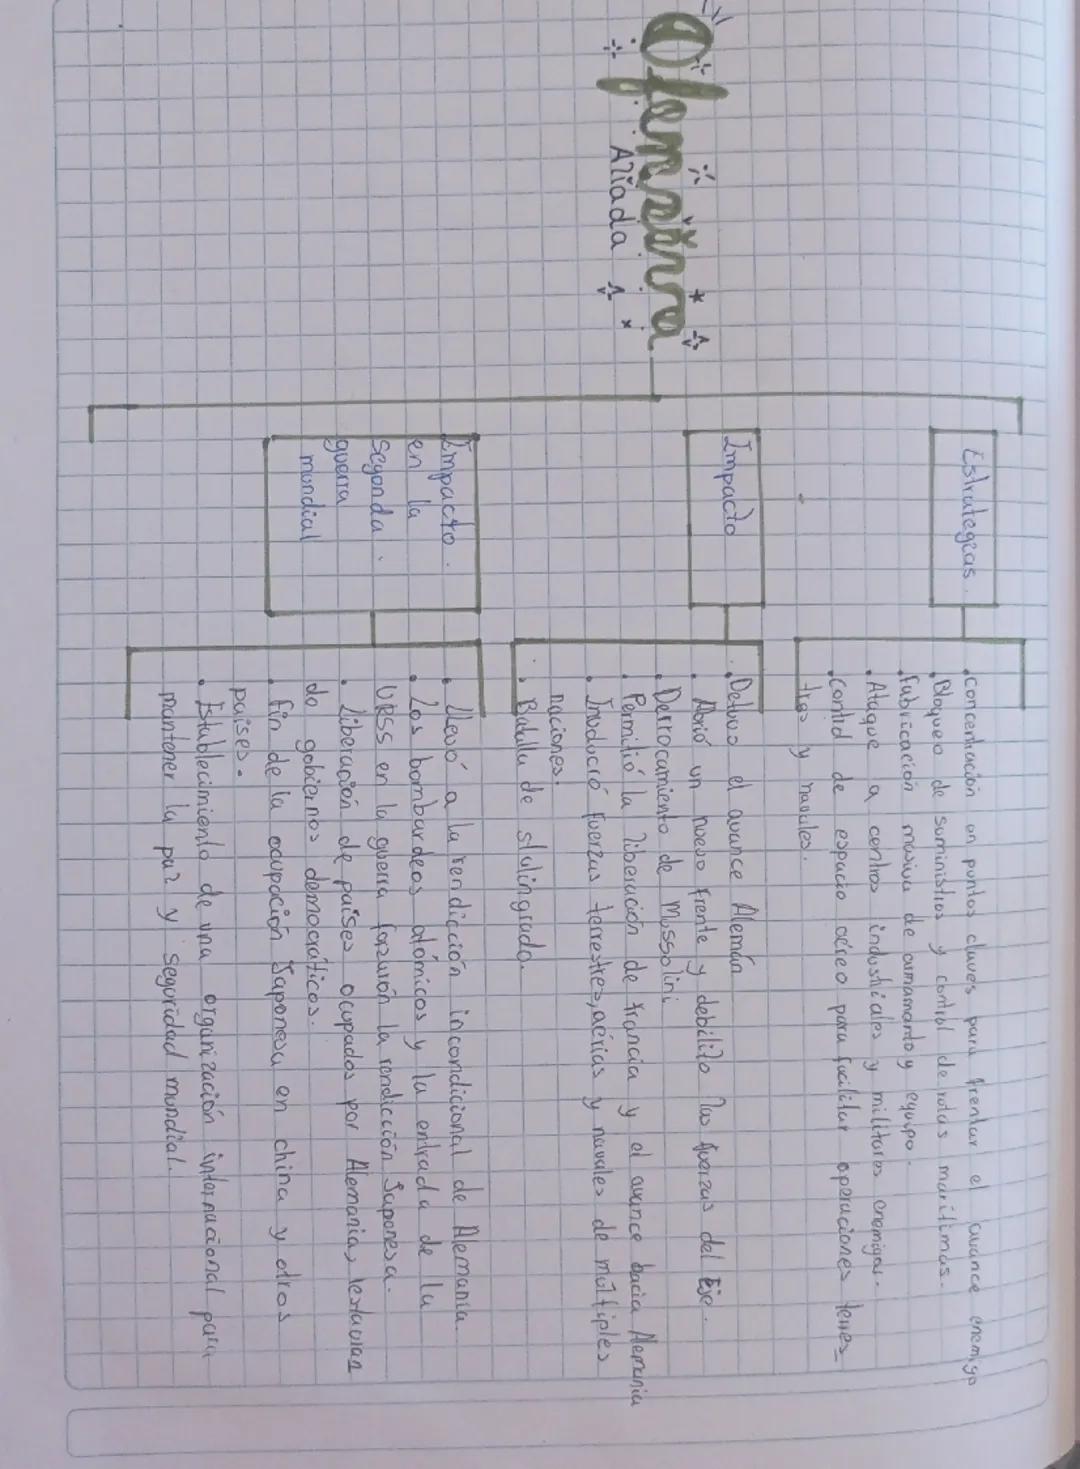 Ofensiva
Aliada
Estrategias.
. Concentración en puntos claves para frentar el avance enemigo
. Bloqueo de suministros y control de rutas marítimas.
. fabricación masiva de armamento y equipo.
. Ataque a centros industriales y militares enemigos.
. Control de espacio aéreo para facilitar operaciones terres
tres y navales.
Impacto
. Detuvo el avance Alemán
. Abrió un nuevo frente y debilito las fuerzas del Eje.
. Derrocamiento de Mussolini
. Permitió la liberación de francia y el avance hacia Alemania
. Involucró fuerzas terrestres, aérias y navales de múltiples
naciones.
. Batalla de stalingrado.
Impacto.
en la
segonda.
guerra
mundial
. llevó a la rendicción incondicional de Alemania.
. Los bombardeos atómicos y la entrada de la
URSS en la guerra forzarón la rendicción Japonesa.
. liberación de países ocupados por Alemania,
do gobiernos democráticos.
. fin de la ocupación Japonesa en china y otros
países.
. Establecimiento de una organización internacional para
mantener la paz y segoridad mundial.